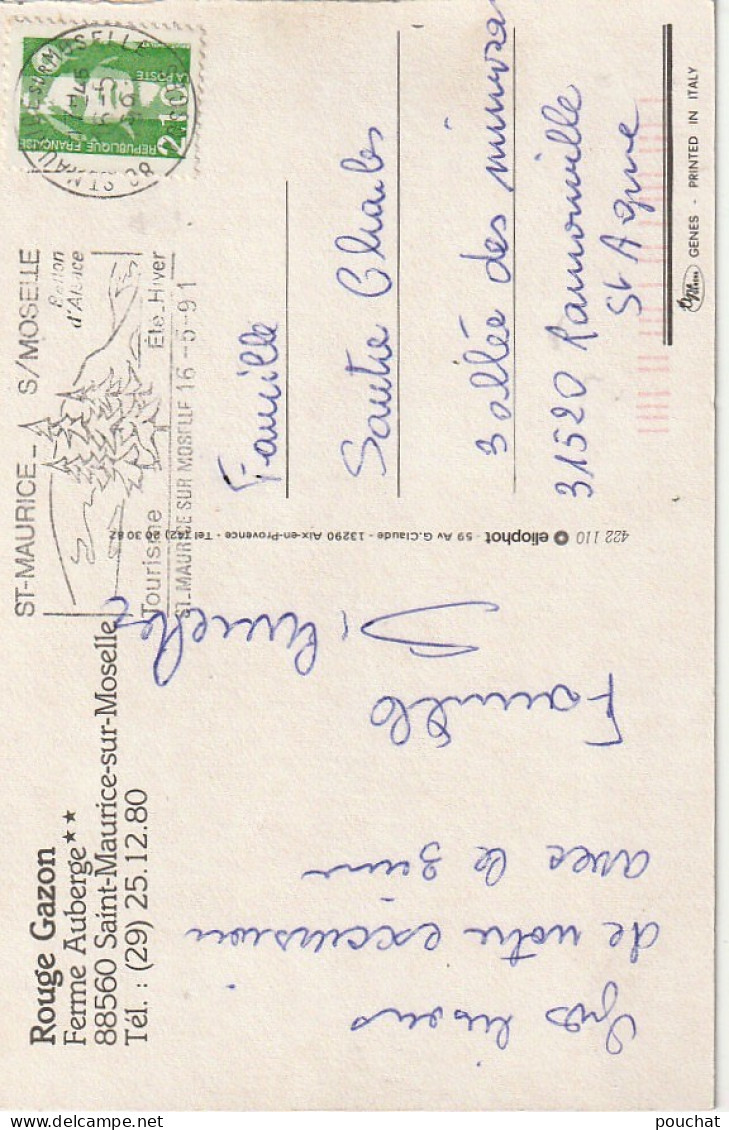 Rouge Gazon
Ferme Auberge**
88560 Saint-Maurice-sur-Moselle
Tél. : (29) 25.12.80
Gros bisous
de notre excursion
avec le 3ème
Famille
ST-MAURICE_ S/MOSELLE
Ballon
d'Alsace
Tourisme Été_Hiver
ST. MAURICE SUR MOSELLE 16-5-91
RÉPUBLIQUE FRANÇAISE
LA POSTE
2,10
VOSGES
Famille
Sautre Charles
3 allée des mimosas
31520 Ramonville
St Agne
422 110 ellophot - 59 Av G.Claude - 13290 Aix-en-Provence - Tel (42) 20 30 82
GENES - PRINTED IN ITALY
pouchat